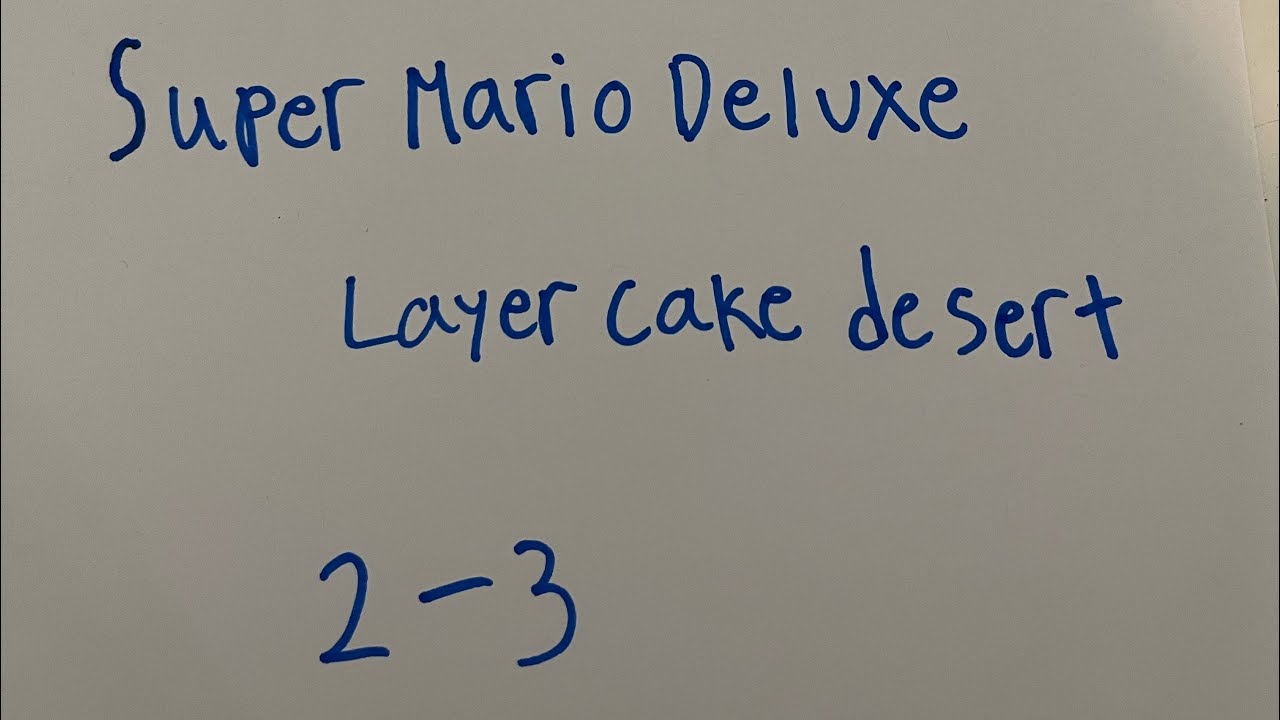 Super Mario Deluxe
Layer cake desert
2-3